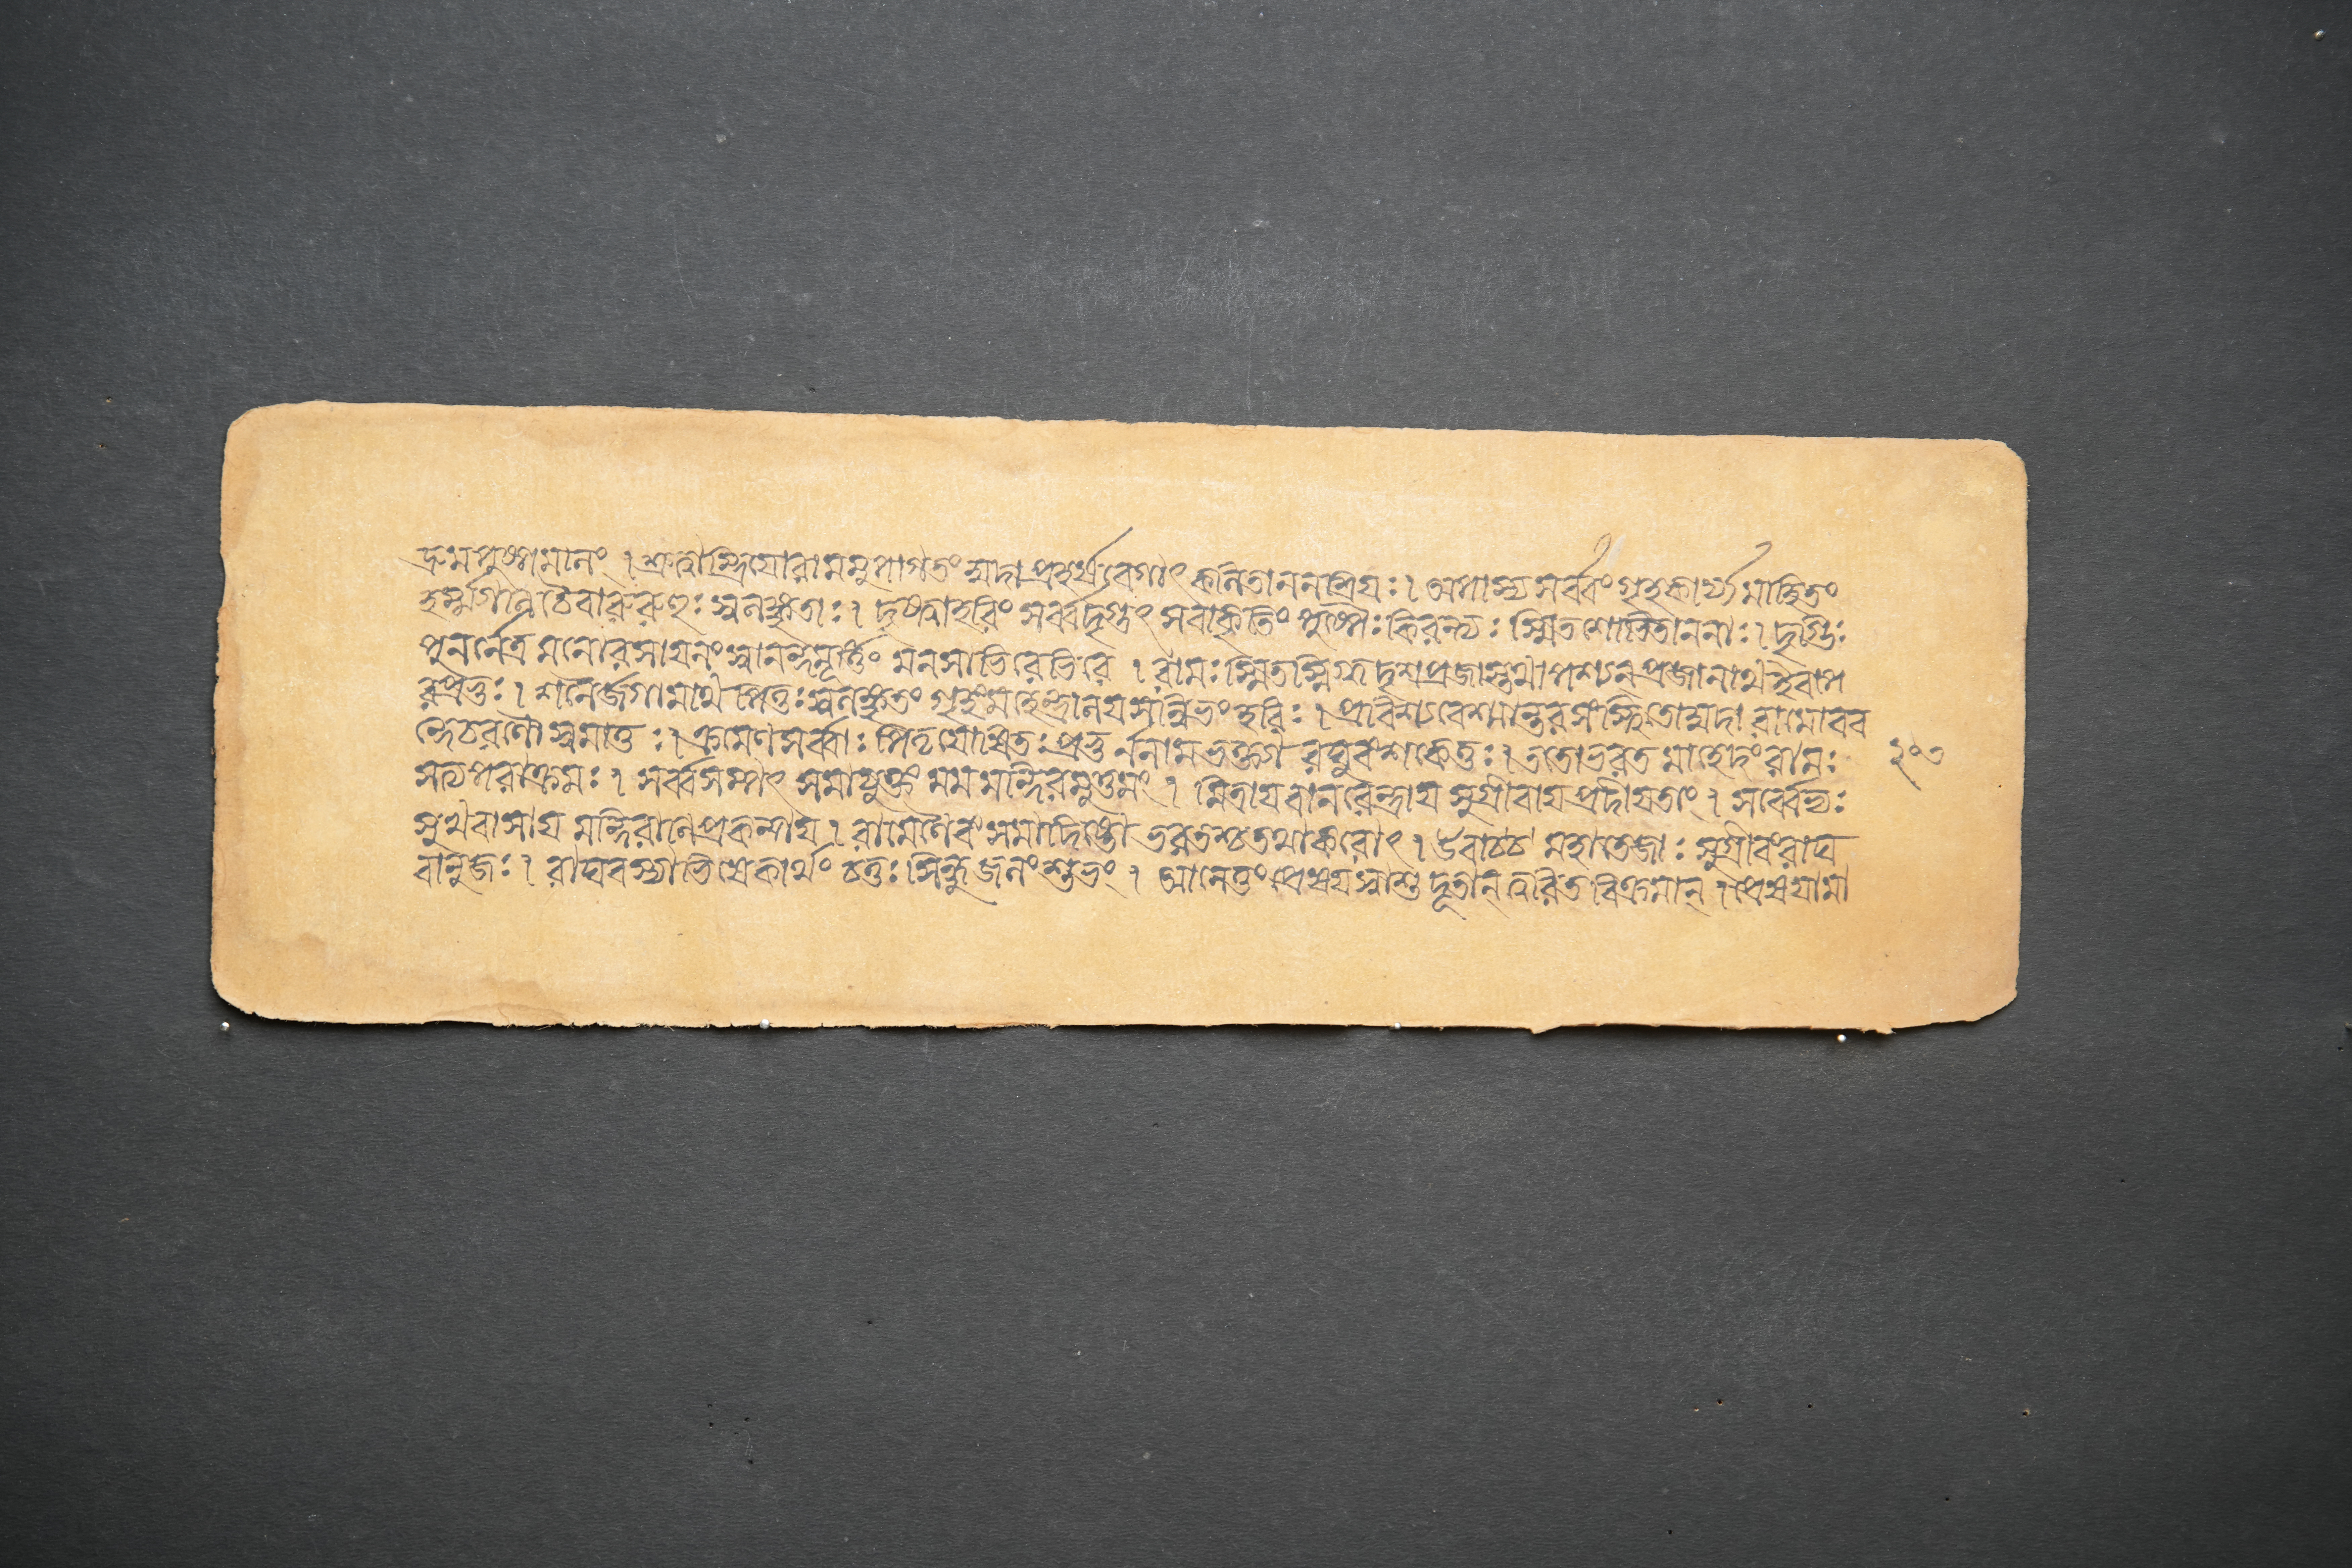 দ্রুমপুষ্পমালং । শ্রুত্বাস্ত্রিযোরামমুপাগতং মুদা প্রহর্ষবেগোৎকলিতাননশ্রিযঃ । অপাস্য সর্ব্বং গৃহকার্য্যমাহিতং
হর্ম্ম্যাণি চৈবারুরুহুঃ স্বলঙ্কৃতাঃ । দৃষ্ট্বাহরিং সর্ব্বদৃগুৎসবাকৃতিং পুষ্পৈঃ কিরন্ত্যঃ স্মিতশোভিতাননাঃ । দৃগ্ভিঃ
পুনর্নেত্রমনোরসাযনং স্বানন্দমূর্ত্তিং মনসাভিরেভিরে । রামঃ স্মিতস্নিগ্ধদৃশপ্রজাস্তথাপশ্যন্প্রজানাথইবাপ
রপ্রভুঃ । শনৈর্জগামাথপিতুঃ স্বলঙ্কৃতং গৃহংমহেন্দ্রালযসন্নিভং হরিঃ । প্রবিশ্যবেশ্মান্তরসংস্থিতোমুদা রামোবব
ন্দেচরণৌ স্বমাতুঃ । ক্রমেণসর্ব্বাঃ পিতৃযোষিতঃ প্রভুর্ননামভক্ত্যা রঘুবংশকেতুঃ । ততোভরতমাহেদং রামঃ
সত্যপরাক্রমঃ । সর্ব্বসম্পৎ সমাযুক্তং মমমন্দিরমুত্তমং । মিত্রাযবানরেন্দ্রায সুগ্রীবাযপ্রদীযতাং । সর্ব্বেভ্যঃ
সুখবাসায মন্দিরানিপ্রকল্পায । রামেণৈবংসমাদিষ্টো ভরতশ্চতথাকরোৎ । উবাচচ মহাতেজাঃ সুগ্রীবংরাঘ
বানুজঃ । রাঘবস্যাভিষেকার্থং চতুঃসিন্ধুজলংশুভং । আনেতুংপ্রেষযস্বাশু দূতান্ ত্বরিতবিক্রমান্ । প্রেষযামা